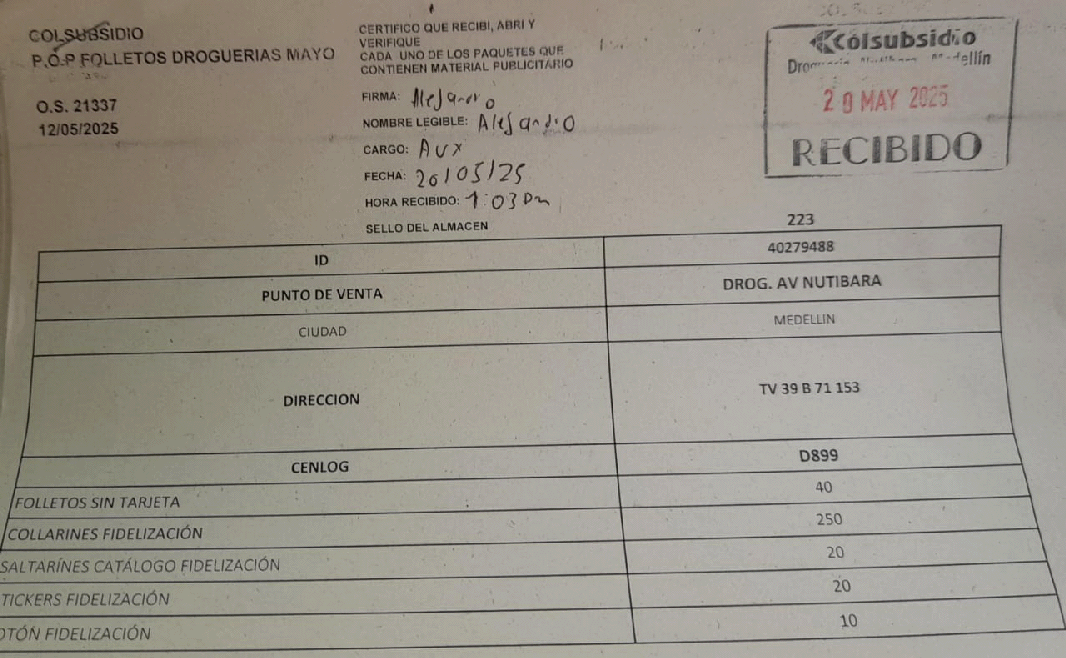 COLSUBSIDIO
P.O.P FOLLETOS DROGUERIAS MAYO
O.S. 21337
12/05/2025
CERTIFICO QUE RECIBI, ABRI Y
VERIFIQUE
CADA UNO DE LOS PAQUETES QUE
CONTIENEN MATERIAL PUBLICITARIO
FIRMA: Alejandro
NOMBRE LEGIBLE: Alejandro
CARGO: Aux
FECHA: 20/05/25
HORA RECIBIDO: 1:03 Pm
SELLO DEL ALMACEN
Colsubsidio
Medellín
20 MAY 2025
RECIBIDO
223
ID 40279488
PUNTO DE VENTA DROG. AV NUTIBARA
CIUDAD MEDELLIN
DIRECCION TV 39 B 71 153
CENLOG D899
FOLLETOS SIN TARJETA 40
COLLARINES FIDELIZACIÓN 250
SALTARÍNES CATÁLOGO FIDELIZACIÓN 20
TICKERS FIDELIZACIÓN 20
OTÓN FIDELIZACIÓN 10